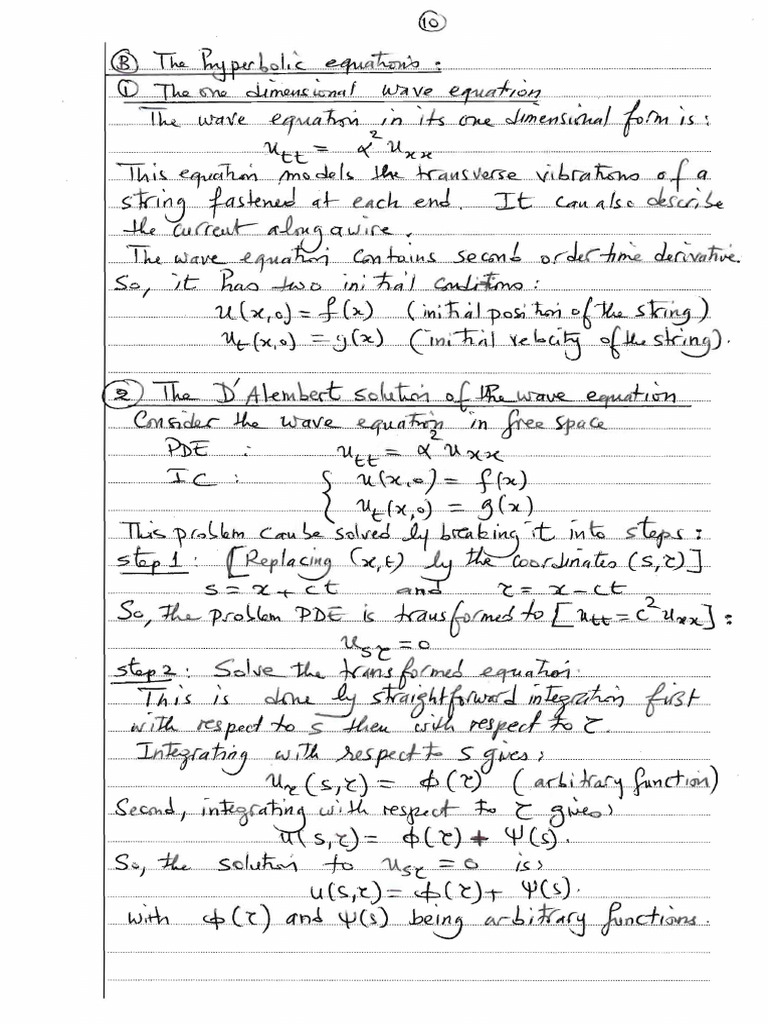 10
Ⓑ The hyperbolic equations:
① The one dimensional wave equation
The wave equation in its one dimensional form is:
u_tt = α² u_xx
This equation models the transverse vibrations of a
string fastened at each end. It can also describe
the current along a wire.
The wave equation contains second order time derivative.
So, it has two initial conditions:
u(x,0) = f(x) (initial position of the string)
u_t(x,0) = g(x) (initial velocity of the string).
② The D'Alembert solution of the wave equation
Consider the wave equation in free space
PDE : u_tt = α² u_xx
IC : { u(x,0) = f(x)
u_t(x,0) = g(x)
This problem can be solved by breaking it into steps:
step 1: [Replacing (x,t) by the coordinates (s,τ)]
s = x + ct and τ = x - ct
So, the problem PDE is transformed to [u_tt = c² u_xx]:
u_sτ = 0
step 2: Solve the transformed equation.
This is done by straightforward integration first
with respect to s then with respect to τ.
Integrating with respect to s gives;
u_τ(s,τ) = ϕ(τ) (arbitrary function)
Second, integrating with respect to τ gives;
u(s,τ) = ϕ(τ) + ψ(s).
So, the solution to u_sτ = 0 is;
u(s,τ) = ϕ(τ) + ψ(s).
with ϕ(τ) and ψ(s) being arbitrary functions.